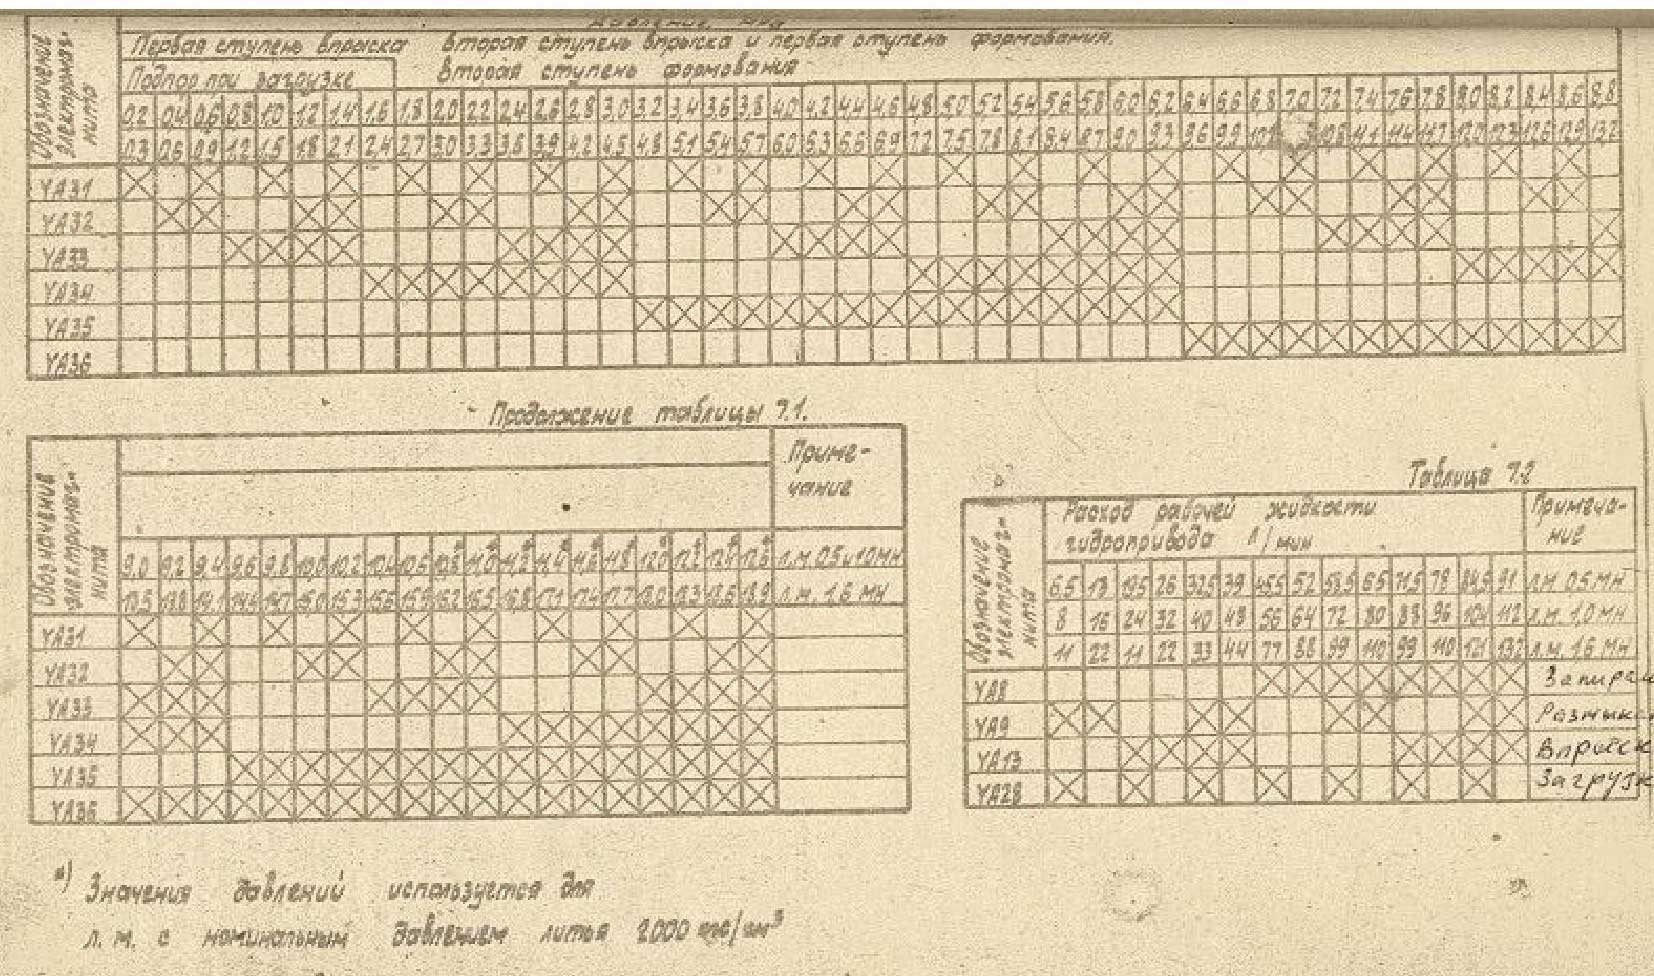 Давление, МПа
Обозначение электромаг-нита
Первая ступень впрыска Вторая ступень впрыска и первая ступень формования.
Подпор при загрузке Вторая ступень формования
0,2 0,4 0,6 0,8 1,0 1,2 1,4 1,6 1,8 2,0 2,2 2,4 2,6 2,8 3,0 3,2 3,4 3,6 3,8 4,0 4,2 4,4 4,6 4,8 5,0 5,2 5,4 5,6 5,8 6,0 6,2 6,4 6,6 6,8 7,0 7,2 7,4 7,6 7,8 8,0 8,2 8,4 8,6 8,8
0,3 0,6 0,9 1,2 1,5 1,8 2,1 2,4 2,7 3,0 3,3 3,6 3,9 4,2 4,5 4,8 5,1 5,4 5,7 6,0 6,3 6,6 6,9 7,2 7,5 7,8 8,1 8,4 8,7 9,0 9,3 9,6 9,9 10,8 11,1 11,4 11,7 12,0 12,3 12,6 12,9 13,2
YA31
YA32
YA33
YA34
YA35
YA36
Продолжение таблицы 7.1.
Обозначение электромаг-нита
Приме-
чание
9,0 9,2 9,4 9,6 9,8 10,0 10,2 10,4 10,6 10,8 11,0 11,2 11,4 11,6 11,8 12,0 12,2 12,4 12,6 л.м. 0,5 и 1,0 МН
13,5 13,8 14,1 14,7 15,0 15,3 15,6 15,9 16,2 16,5 16,8 17,1 17,4 17,7 18,0 18,3 18,6 18,9 л.м. 1,6 МН
YA31
YA32
YA33
YA34
YA35
YA36
Таблица 7.2
Обозначение электромаг-нита
Расход рабочей жидкости
гидропривода л/мин
Примеча-
ние
6,5 13 19,5 26 32,5 39 45,5 52 58,5 65 71,5 78 84,5 91 л.м. 0,5 МН
8 16 24 32 40 48 56 64 72 80 88 96 104 112 л.м. 1,0 МН
11 22 11 22 33 44 77 88 99 110 99 110 121 132 л.м. 1,6 МН
YA8 Запиран
YA9 Размыка
YA13 Впрыск
YA28 Загрузк
*) Значения давлений используется для
л. м. с номинальным давлением литья 2000